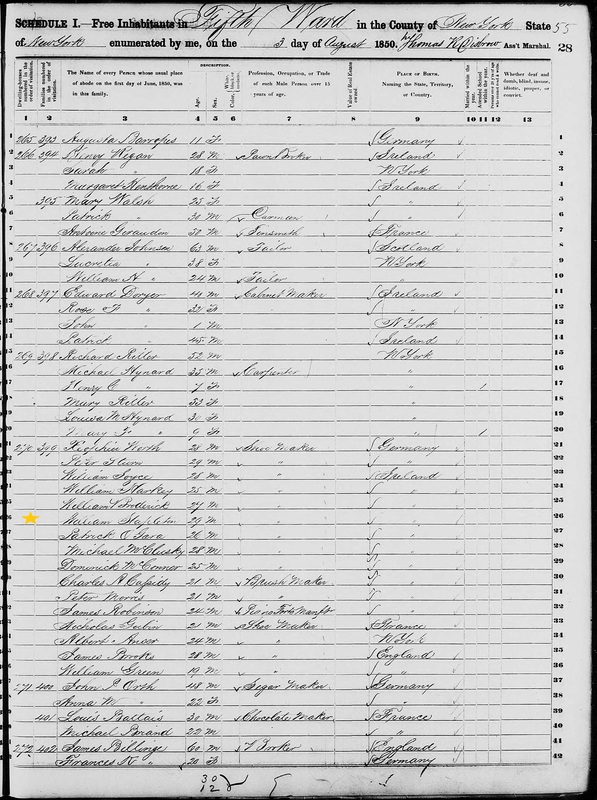 SCHEDULE I.—Free Inhabitants in Fifth Ward in the County of New York State 55
of New York enumerated by me, on the 3 day of August 1850. Thomas K Ass't Marshal. 28
DESCRIPTION.
Dwelling-houses numbered in the order of visitation. Families numbered in the order of visitation. The Name of every Person whose usual place of abode on the first day of June, 1850, was in this family. Age. Sex. Color Profession, Occupation, or Trade of each Male Person over 15 years of age. Value of Real Estate owned. PLACE OF BIRTH. Naming the State, Territory, or Country. Married within the year. Whether deaf and dumb, blind, insane, idiotic, pauper, or convict.
1 2 3 4 5 6 7 8 9 10 11 12 13
1 265 393 Augusta 11 F Germany 1
2 266 394 Henry Wigan 28 M Pawn Broker Ireland 2
3 Sarah " 18 F N York 3
4 Margaret Henthorne 16 F Ireland 4
5 395 Mary Walsh 25 F " 5
6 Patrick " 30 M Carman " 6
7 Antoine Geraudon 30 M Tinsmith France 7
8 267 396 Alexander Johnson 63 M Tailor Scotland 8
9 Lucretia " 38 F N York 9
10 William H " 24 M Tailor " 10
11 268 397 Edward Dwyer 44 M Cabinet Maker Ireland 11
12 Rose F " 32 F " 12
13 John " 1 M N York 13
14 Patrick " 45 M Ireland 14
15 269 398 Richard Riller 52 M N York 15
16 Michael Hynard 35 M Carpenter " 16
17 Henry C " 7 F " 1 17
18 Mary Riller 53 F " 18
19 Louisa M Hynard 30 F " 19
20 " 9 F " 1 20
21 270 399 Worth 28 M Shoe Maker Germany 21
22 Peter 29 M " " 22
23 William Joyce 28 M " Ireland 23
24 William Harkey 25 M " " 24
25 William Broderick 27 M " " 25
26 William Stapleton 29 M " " 26
27 Patrick O Gara 26 M " " 27
28 Michael McClusky 28 M " " 28
29 Dominick McConner 25 M " " 29
30 Charles H Cassidy 21 M Brush Maker " 30
31 Peter Morris 21 M " " 31
32 James Robinson 24 M Piano Forte Manft " 32
33 Nicholas Gulin 21 M Shoe Maker France 33
34 Albert 24 M " N York 34
35 James Brooks 28 M " England 35
36 William Green 19 M " " 36
37 271 400 John P Orth 48 M Segar Maker Germany 37
38 Anna M " 22 F " 38
39 401 Louis Ballais 30 M Chocolate Maker France 39
40 Michael Briand 22 M " 40
41 272 402 James Billings 60 M Broker England 41
42 Frances N " 20 F Germany 42
30
12